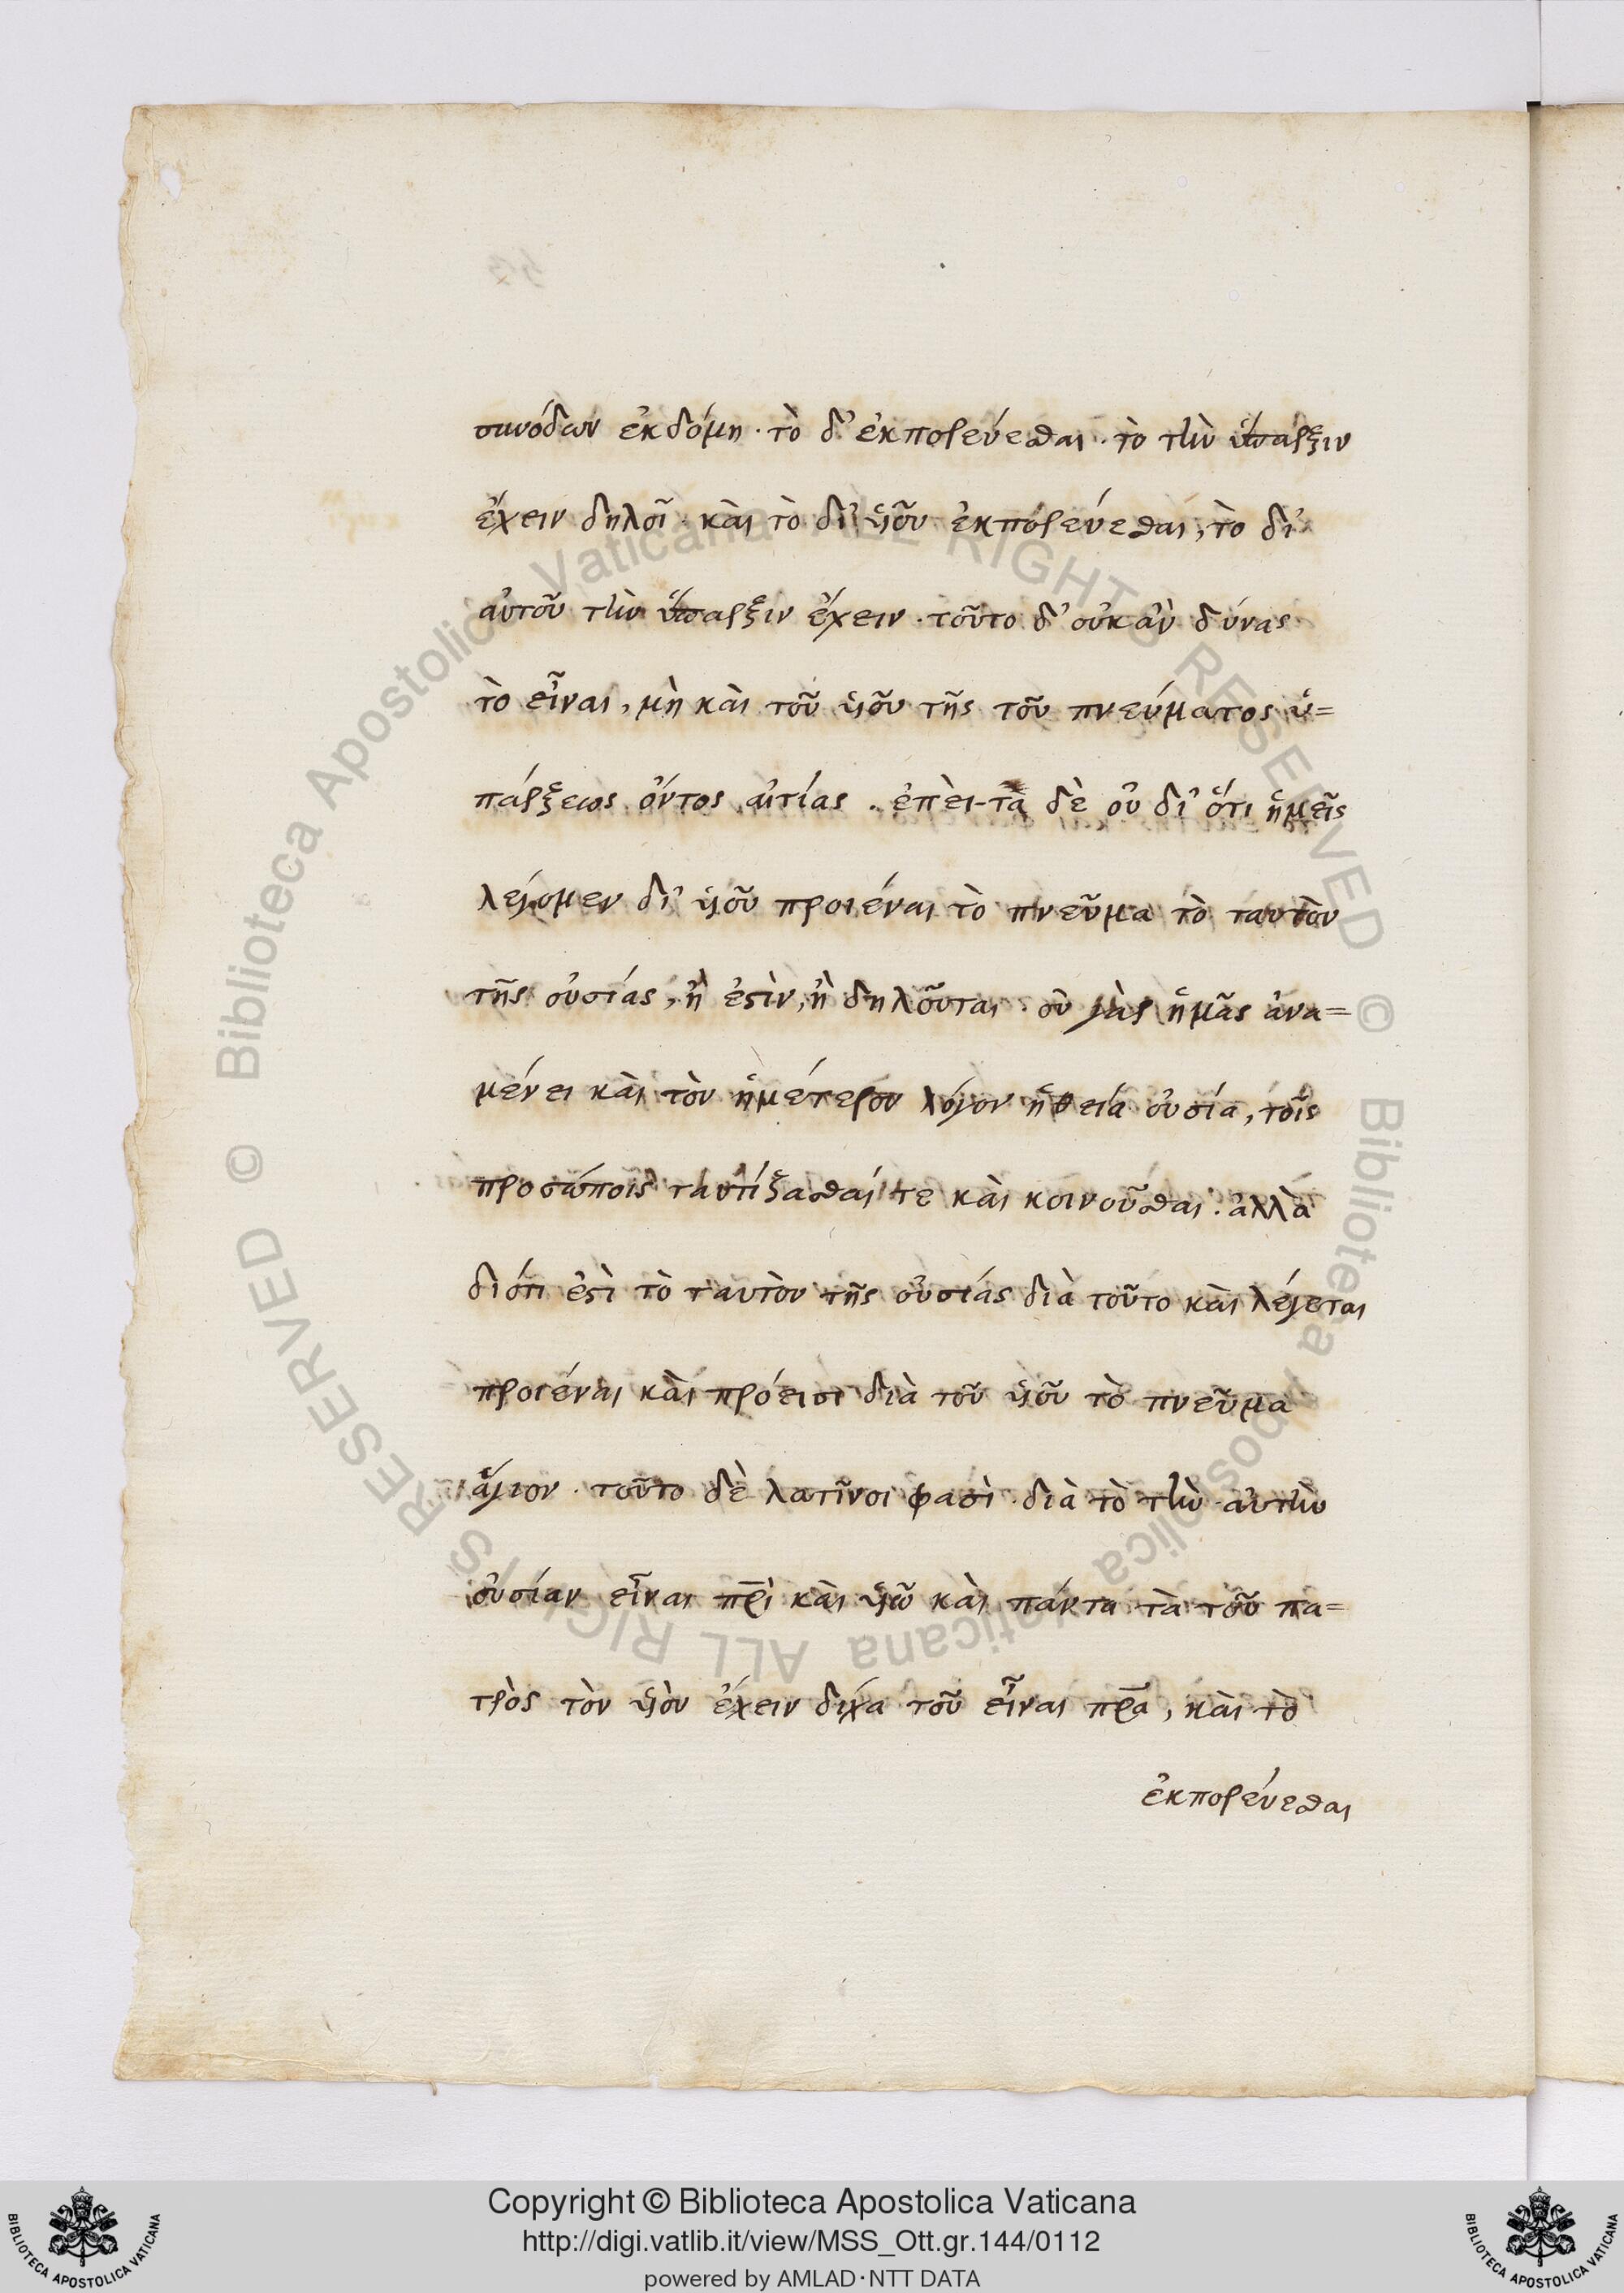 συνόδων ἐκδόμη· τὸ δ' ἐκπορεύεσθαι· τὸ τὴν ὕπαρξιν
ἔχειν δηλοῖ· καὶ τὸ δι' υἱοῦ ἐκπορεύεσθαι, τὸ δι'
αὐτοῦ τὴν ὕπαρξιν ἔχειν· τοῦτο δ' οὐκ ἂν δύναι
τὸ εἶναι, μὴ καὶ τοῦ υἱοῦ τῆς τοῦ πνεύματος ὑ=
πάρξεως ὄντος αἰτίας. ἐπὲι-τα δὲ οὐ δι' ὅτι ἡμεῖς
λέγομεν δι' υἱοῦ προιέναι τὸ πνεῦμα τὸ ταυτὸν
τῆς οὐσίας, ἢ ἐστὶν, ἢ δηλοῦται· οὐ γὰρ ἡμᾶς ἀνα=
μένει καὶ τὸν ἡμέτερον λόγον ἡ θεία οὐσία, τοῖς
προσώποις ταυτίζασθαί τε καὶ κοινοῦσθαι· ἀλλὰ
διότι ἐστὶ τὸ ταυτὸν τῆς οὐσίας διὰ τοῦτο καὶ λέγεται
προιέναι καὶ πρόεισι διὰ τοῦ υἱοῦ τὸ πνεῦμα
ἅγιον· τοῦτο δὲ λατῖνοι φασὶ· διὰ τὸ τὴν αὐτὴν
οὐσίαν εἶναι πρὶ καὶ υἱῷ καὶ πάντα τὰ τοῦ πα=
τρὸς τὸν υἱὸν ἔχειν δίχα τοῦ εἶναι πρα, καὶ τὸ
ἐκπορεύεσθαι
© Biblioteca Apostolica Vaticana ALL RIGHTS RESERVED © Biblioteca Apostolica Vaticana ALL RIGHTS RESERVED
Copyright © Biblioteca Apostolica Vaticana
http://digi.vatlib.it/view/MSS_Ott.gr.144/0112
powered by AMLAD·NTT DATA
BIBLIOTECA APOSTOLICA VATICANA
BIBLIOTECA APOSTOLICA VATICANA